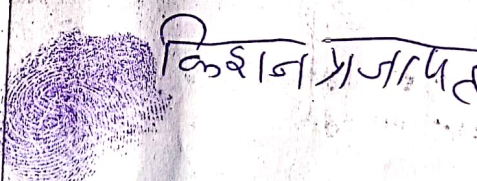 किशन प्रजापत